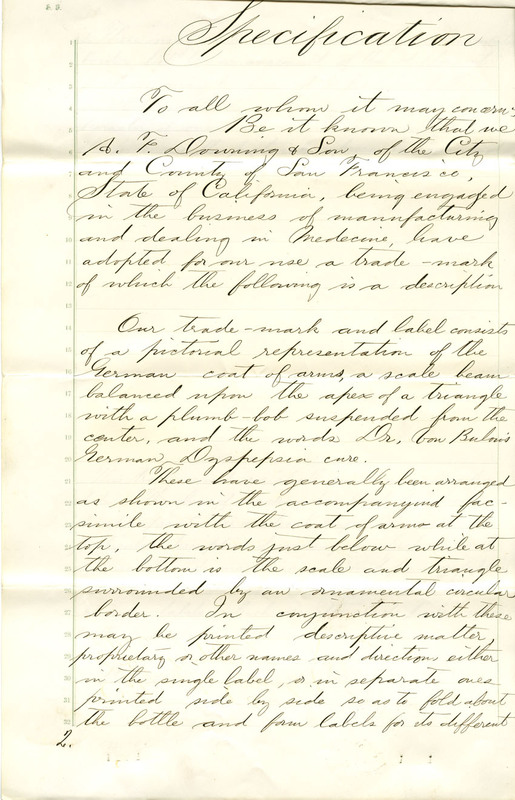 Specification
To all whom it may concern;
Be it known that we
A. F. Downing & Son of the City
and County of San Francisco,
State of California, being engaged
in the business of mannfacturing
and dealing in Medecine, have
adopted for our use a trade-mark
of which the following is a description
Our trade-mark and label consists
of a pictorial representation of the
German coat of arms, a scale beam
balanced upon the apex of a triangle
with a plumb-bob suspended from the
center, and the words Dr. Von Bulow's
German Dyspepsia cure.
These have generally been arranged
as shown in the accompanying fac-
simile with the coat of arms at the
top, the words just below while at
the bottom is the scale and triangle
surrounded by an ornamental circular
border. In conjunction with these
may be printed descriptive matter,
proprietary or other names and direction, either
in the single label, or in separate ones
printed side by side so as to fold about
the bottle and form labels for its different
2.